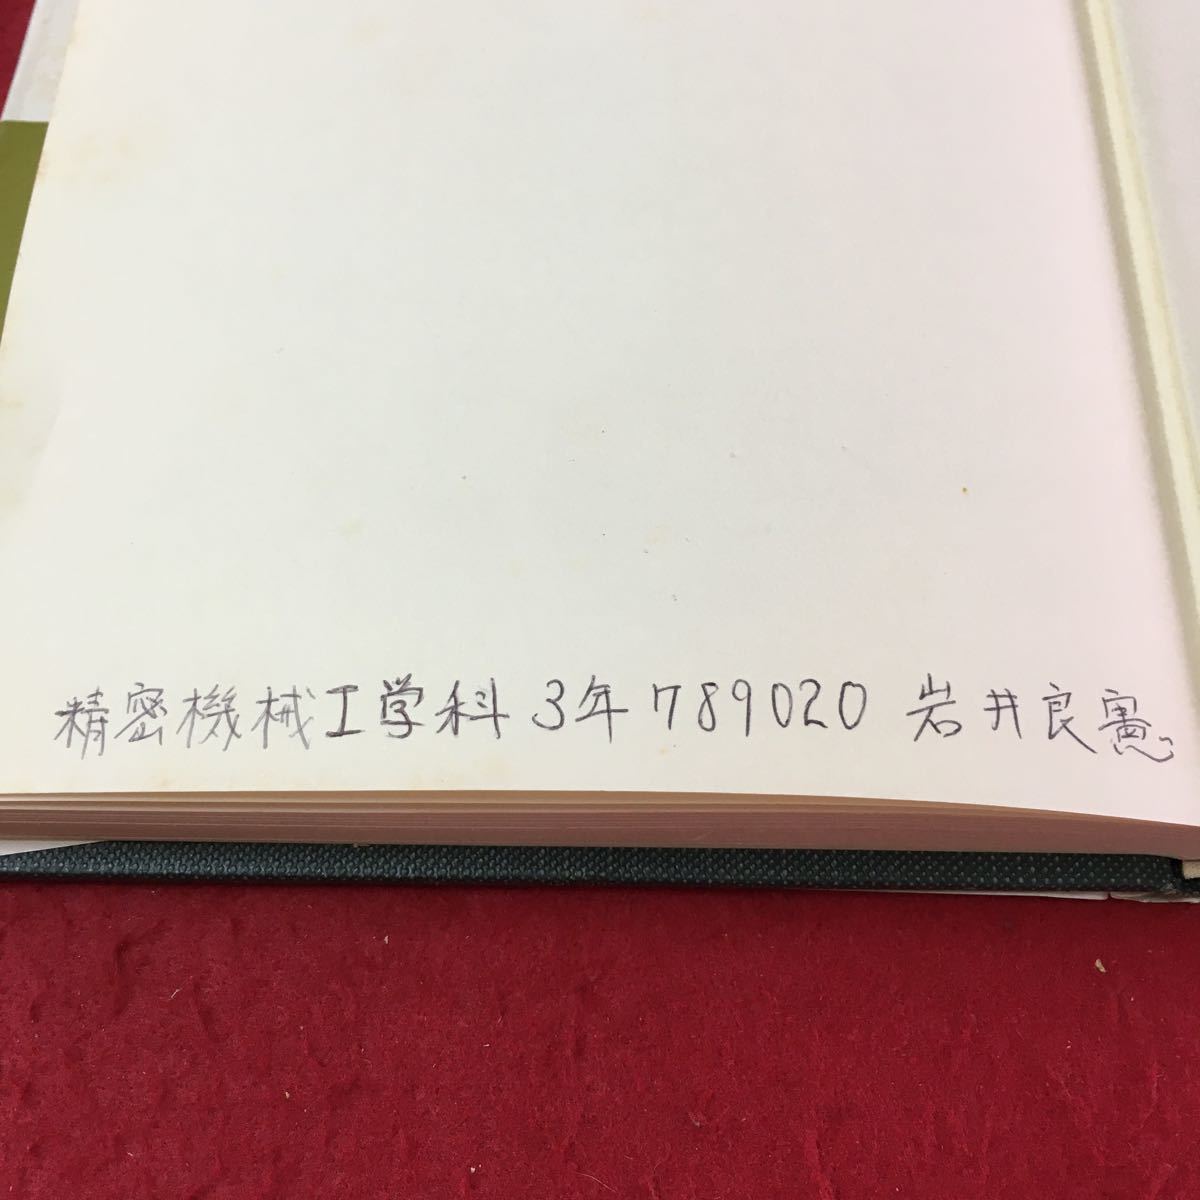 精密機械工学科 3年 789020 岩井良憲